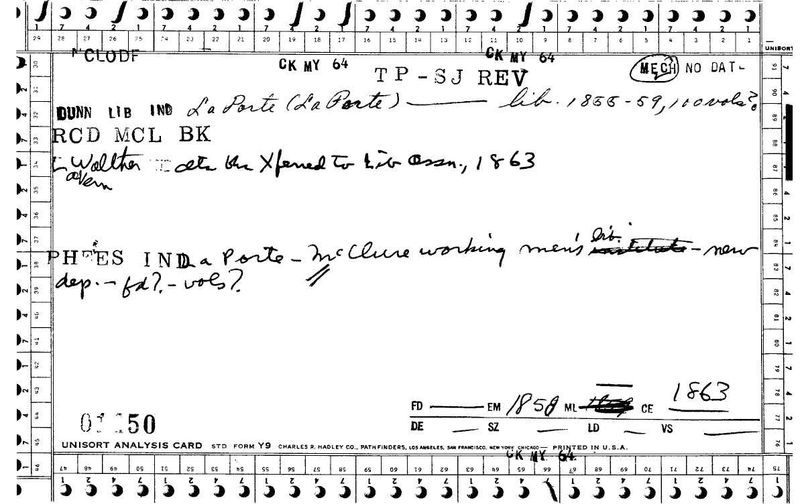 CLODF
CK MY 64
CK MY 64
TP-SJ REV
MECH NO DAT-
DUNN LIB IND La Porte (La Porte) — lib. 1855-59, 100 vols?
RCD MCL BK
Walther Xferred to Lib Assn., 1863
PHEES IND La Porte - McClure working men's lib. - new
dep. - fd? - vols?
1863
FD — EM 1858 ML CE
DE — SZ — LD — VS —
01 150
UNISORT ANALYSIS CARD STD FORM Y9 CHARLES R. HADLEY CO., PATHFINDERS, LOS ANGELES, SAN FRANCISCO, NEW YORK, CHICAGO — PRINTED IN U.S.A.
CK MY 64